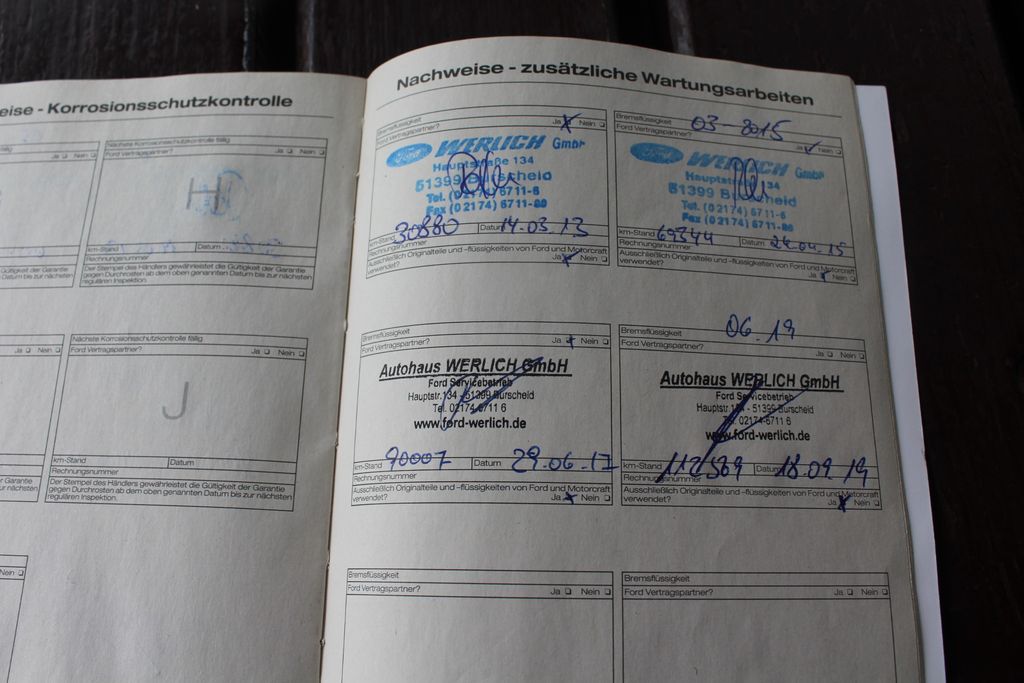 eise - Korrosionsschutzkontrolle
Ja Nein
Gültigkeit der Garantie
Datum bis zur nächsten
Nächste Korrosionsschutzkontrolle fällig
Ford Vertragspartner? Ja Nein
H
km-Stand Datum
Rechnungsnummer
Der Stempel des Händlers gewährleistet die Gültigkeit der Garantie
gegen Durchrosten ab dem oben genannten Datum bis zur nächsten
regulären Inspektion.
Ja Nein
Gültigkeit der Garantie
Datum bis zur nächsten
Nächste Korrosionsschutzkontrolle fällig
Ford Vertragspartner? Ja Nein
J
km-Stand Datum
Rechnungsnummer
Der Stempel des Händlers gewährleistet die Gültigkeit der Garantie
gegen Durchrosten ab dem oben genannten Datum bis zur nächsten
regulären Inspektion.
Nein
Nachweise - zusätzliche Wartungsarbeiten
Bremsflüssigkeit
Ford Vertragspartner? Ja Nein
Ford WERLICH GmbH
Hauptstraße 134
51399 Burscheid
Tel. (02174) 6711-6
Fax (02174) 6711-80
km-Stand 30880 Datum 14.03.13
Rechnungsnummer
Ausschließlich Originalteile und -flüssigkeiten von Ford und Motorcraft
verwendet? Ja Nein
Bremsflüssigkeit 03-2015
Ford Vertragspartner? Ja Nein
Ford WERLICH GmbH
Hauptstraße 134
51399 Burscheid
Tel. (02174) 6711-6
Fax (02174) 6711-80
km-Stand 69744 Datum 24.04.15
Rechnungsnummer
Ausschließlich Originalteile und -flüssigkeiten von Ford und Motorcraft
verwendet? Ja Nein
Bremsflüssigkeit
Ford Vertragspartner? Ja Nein
Autohaus WERLICH GmbH
Ford Servicebetrieb
Hauptstr.134 - 51399 Burscheid
Tel. 02174-6711 6
www.ford-werlich.de
km-Stand 90007 Datum 29.06.17
Rechnungsnummer
Ausschließlich Originalteile und -flüssigkeiten von Ford und Motorcraft
verwendet? Ja Nein
Bremsflüssigkeit 06.19
Ford Vertragspartner? Ja Nein
Autohaus WERLICH GmbH
Ford Servicebetrieb
Hauptstr.134 - 51399 Burscheid
Tel. 02174-6711 6
www.ford-werlich.de
km-Stand 112589 Datum 18.09.19
Rechnungsnummer
Ausschließlich Originalteile und -flüssigkeiten von Ford und Motorcraft
verwendet? Ja Nein
Bremsflüssigkeit
Ford Vertragspartner? Ja Nein
Bremsflüssigkeit
Ford Vertragspartner? Ja Nein